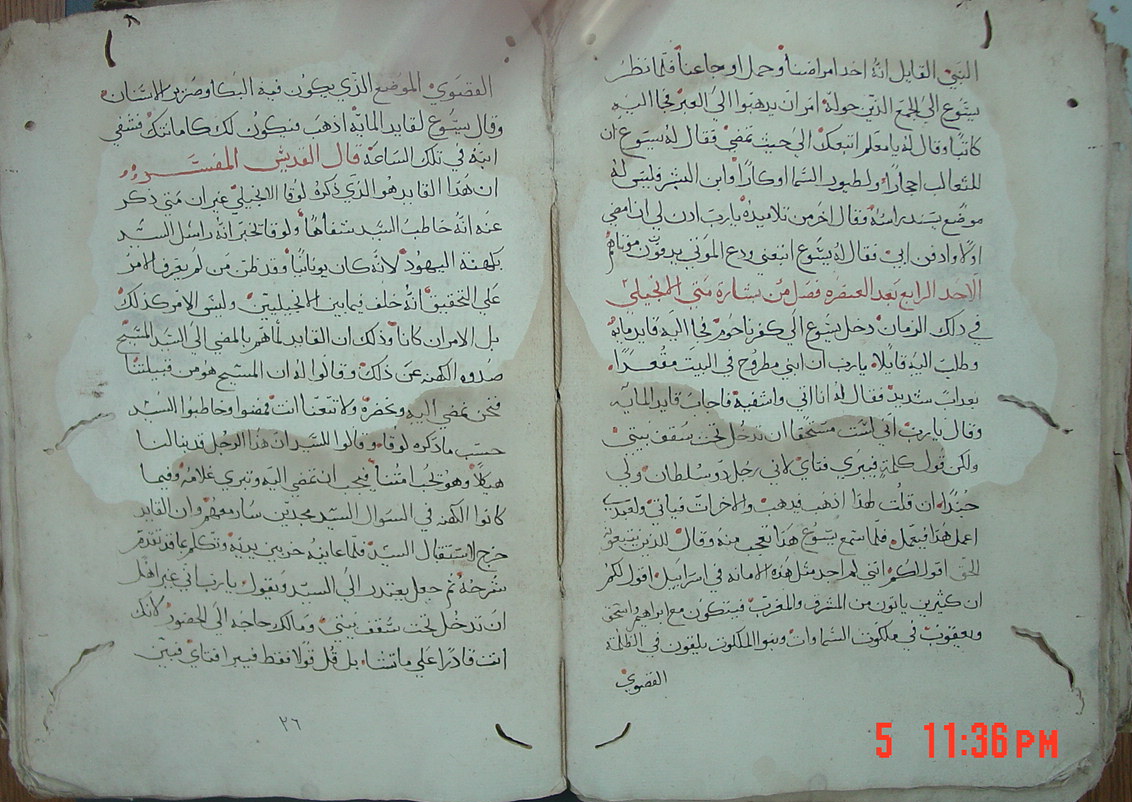 النبي القايل انه اخد امراضنا وحمل اوجاعنا فلما نظر
يسوع الي الجمع الذين حوله امر ان يدهبوا الي العبر فجا اليه
كاتبا وقال له يا معلم اتبعك الي حيث تمضي فقال له يسوع ان
للثعالب اجحارا ولطيور السما اوكارا وابن البشر فليس له
موضع يسند راسه فقال اخر من تلاميده يا رب ادن لي ان امضي
اولا وادفن ابي فقال له يسوع اتبعني ودع الموتي يدفنون موتاهم
الاحد الرابع بعد العنصره فصل من بشارة متي الانجيلي
في دلك الزمان دخل يسوع الي كفرناحوم فجا اليه قايد مايه
وطلب اليه قايلا يا رب ان ابني مطروح في البيت مقعدا
بعداب شديد فقال له انا اتي واشفيه فاجاب قايد المايه
وقال يا رب اني لست مستحقا ان تدخل تحت سقف بيتي
ولكن قول كلمة فيبري فتاي لاني رجل دو سلطان ولي
جندا ان قلت لهدا ادهب فيدهب والاخر ات فياتي ولعبدي
اعمل هدا فيعمله فلما سمع يسوع هدا تعجب منه وقال للدين يتبعوه
الحق اقول لكم انني لم اجد مثل هده الامانه في اسراييل اقول لكم
ان كثيرين ياتون من المشرق والمغرب فيتكون مع ابراهيم واسحق
ويعقوب في ملكوت السماوات وبنو الملكوت يلقون في الظلمة
القصوي
القصوي الموضع الذي يكون فيه البكا وصرير الاسنان
وقال يسوع لقايد المايه ادهب فيكون لك كامانتك فشفي
ابنه في تلك الساعة قال القديس المفسر
ان هدا القايد هو الذي دكره لوقا الانجيلي غير ان متي دكر
عنه انه خاطب السيد شفاها ولوقا يخبر انه راسل السيد
بكهنة اليهود لانه كان يونانيا وقد ظن من لم يعرف الامر
علي التحقيق انه خلف فيما بين الانجيليين وليس الامر كدلك
بل الامران كانا ودلك ان القايد لما هم بالمضي الي السيد المسيح
صدوه الكهنه عن دلك وقالوا له ان المسيح هو من قبيلتنا
فنحن نمضي اليه ونحضره ولا تتعنا انت فمضوا وخاطبوا السيد
حسب ما دكره لوقا وقالوا للسيد ان هدا الرجل قد بنا لنا
هيكلا وهو يحب امتنا فيجب ان تمضي اليه وتبري غلامه وفيما
كانوا الكهنه في السوال السيد مجدين سار معهم وان القايد
خرج لاستقبال السيد فلما عاينه خر بين يديه وتكلم بما قد تقدم
شرحه ثم جعل يعتدر الي السيد ويقول يا رب اني غير اهل
ان تدخل تحت سقف بيتي وما لك حاجه الي الحضور لانك
انت قادرا علي ما تشا بل قل قولا فقط فيبرا فتاي فبين
٢٦
5 11:36 PM